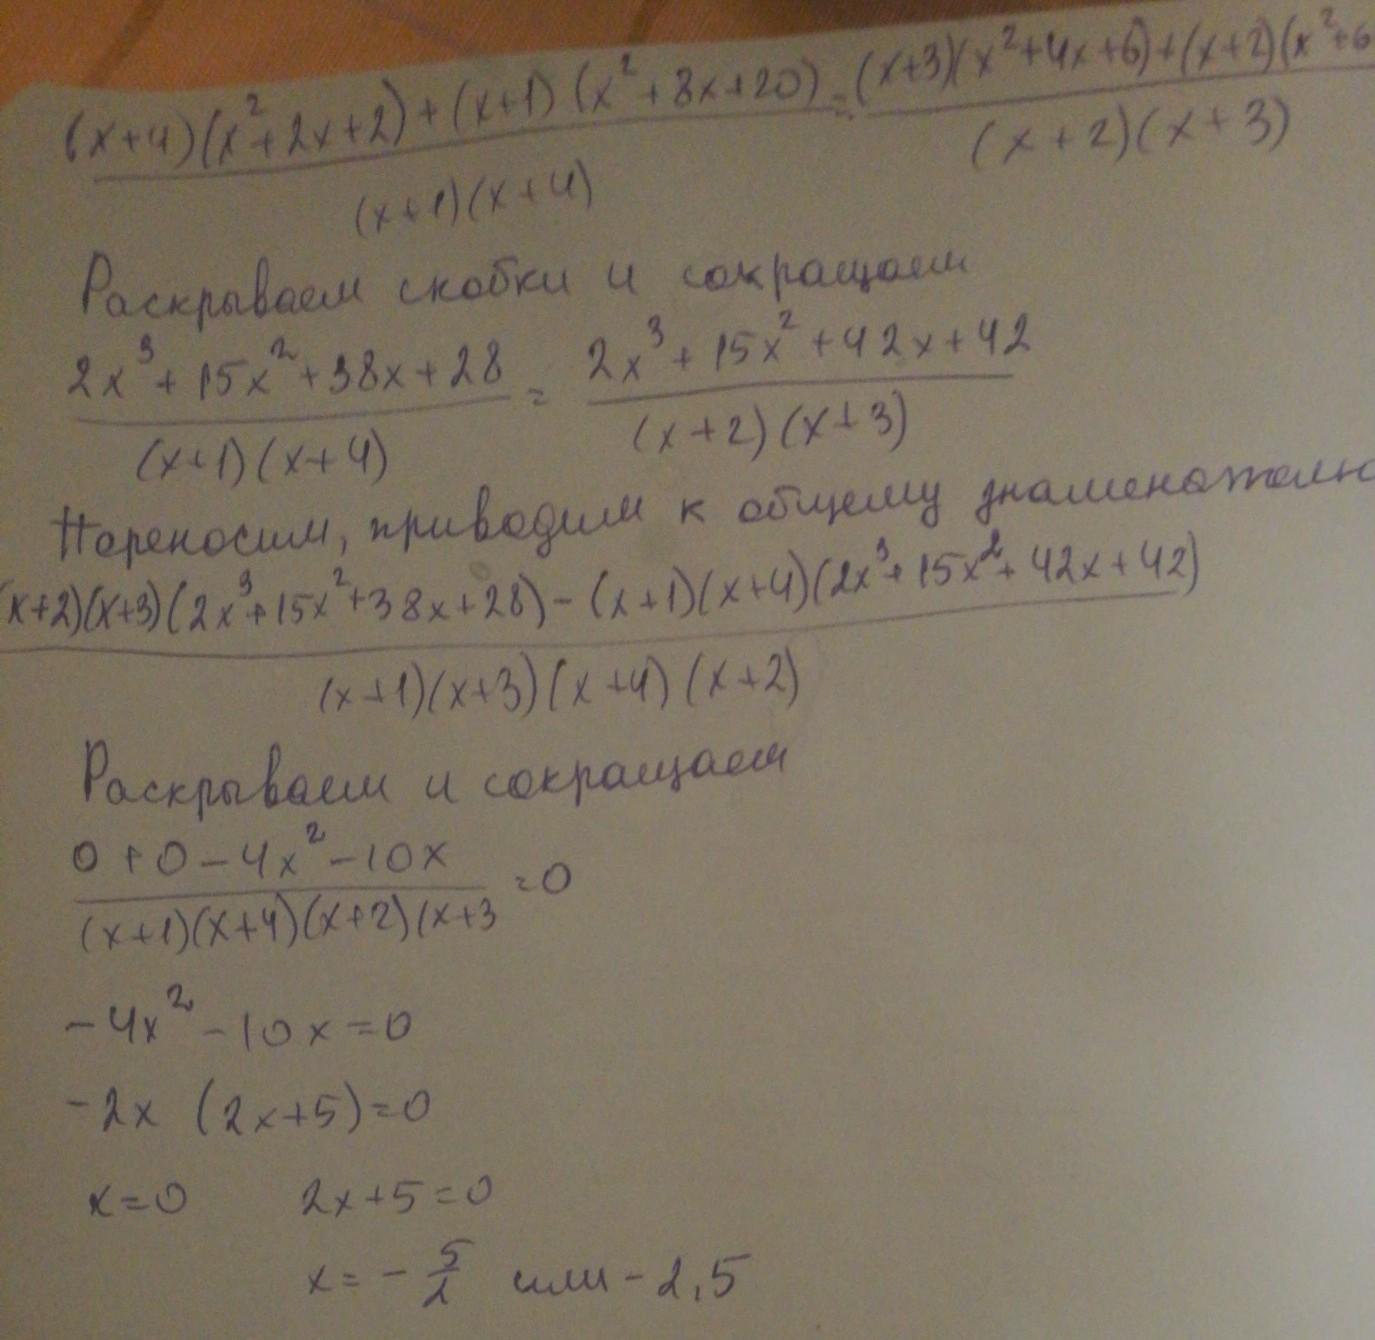 (x+4)(x²+2x+2)+(x+1)(x²+8x+20) = (x+3)(x²+4x+6)+(x+2)(x²+6
(x+1)(x+4) (x+2)(x+3)
Раскрываем скобки и сокращаем
2x³+15x²+38x+28 = 2x³+15x²+42x+42
(x+1)(x+4) (x+2)(x+3)
Переносим, приводим к общему знаменателю
(x+2)(x+3)(2x³+15x²+38x+28)-(x+1)(x+4)(2x³+15x²+42x+42)
(x+1)(x+3)(x+4)(x+2)
Раскрываем и сокращаем
0+0-4x²-10x =0
(x+1)(x+4)(x+2)(x+3
-4x²-10x=0
-2x (2x+5)=0
x=0 2x+5=0
x=-5/2 или -2,5